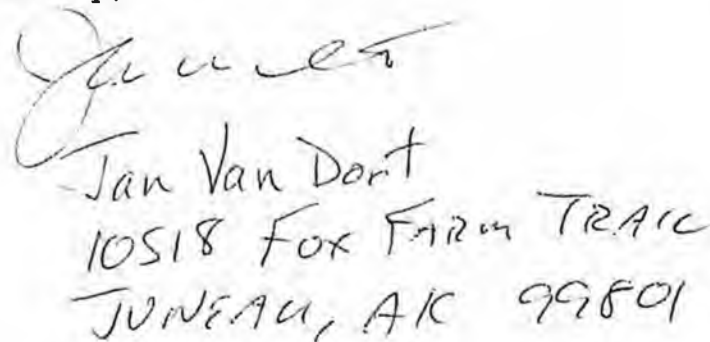 Jan Van Dort
10518 Fox FARM TRAIL
JUNEAU, AK 99801